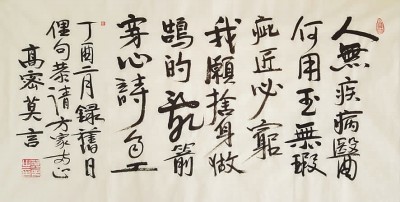 人無疾病醫
何用玉無瑕
疵匠必窮
我願捨身做
鵠的亂箭
穿心詩自工
丁酉二月錄舊日
俚句恭請方家正
高密莫言